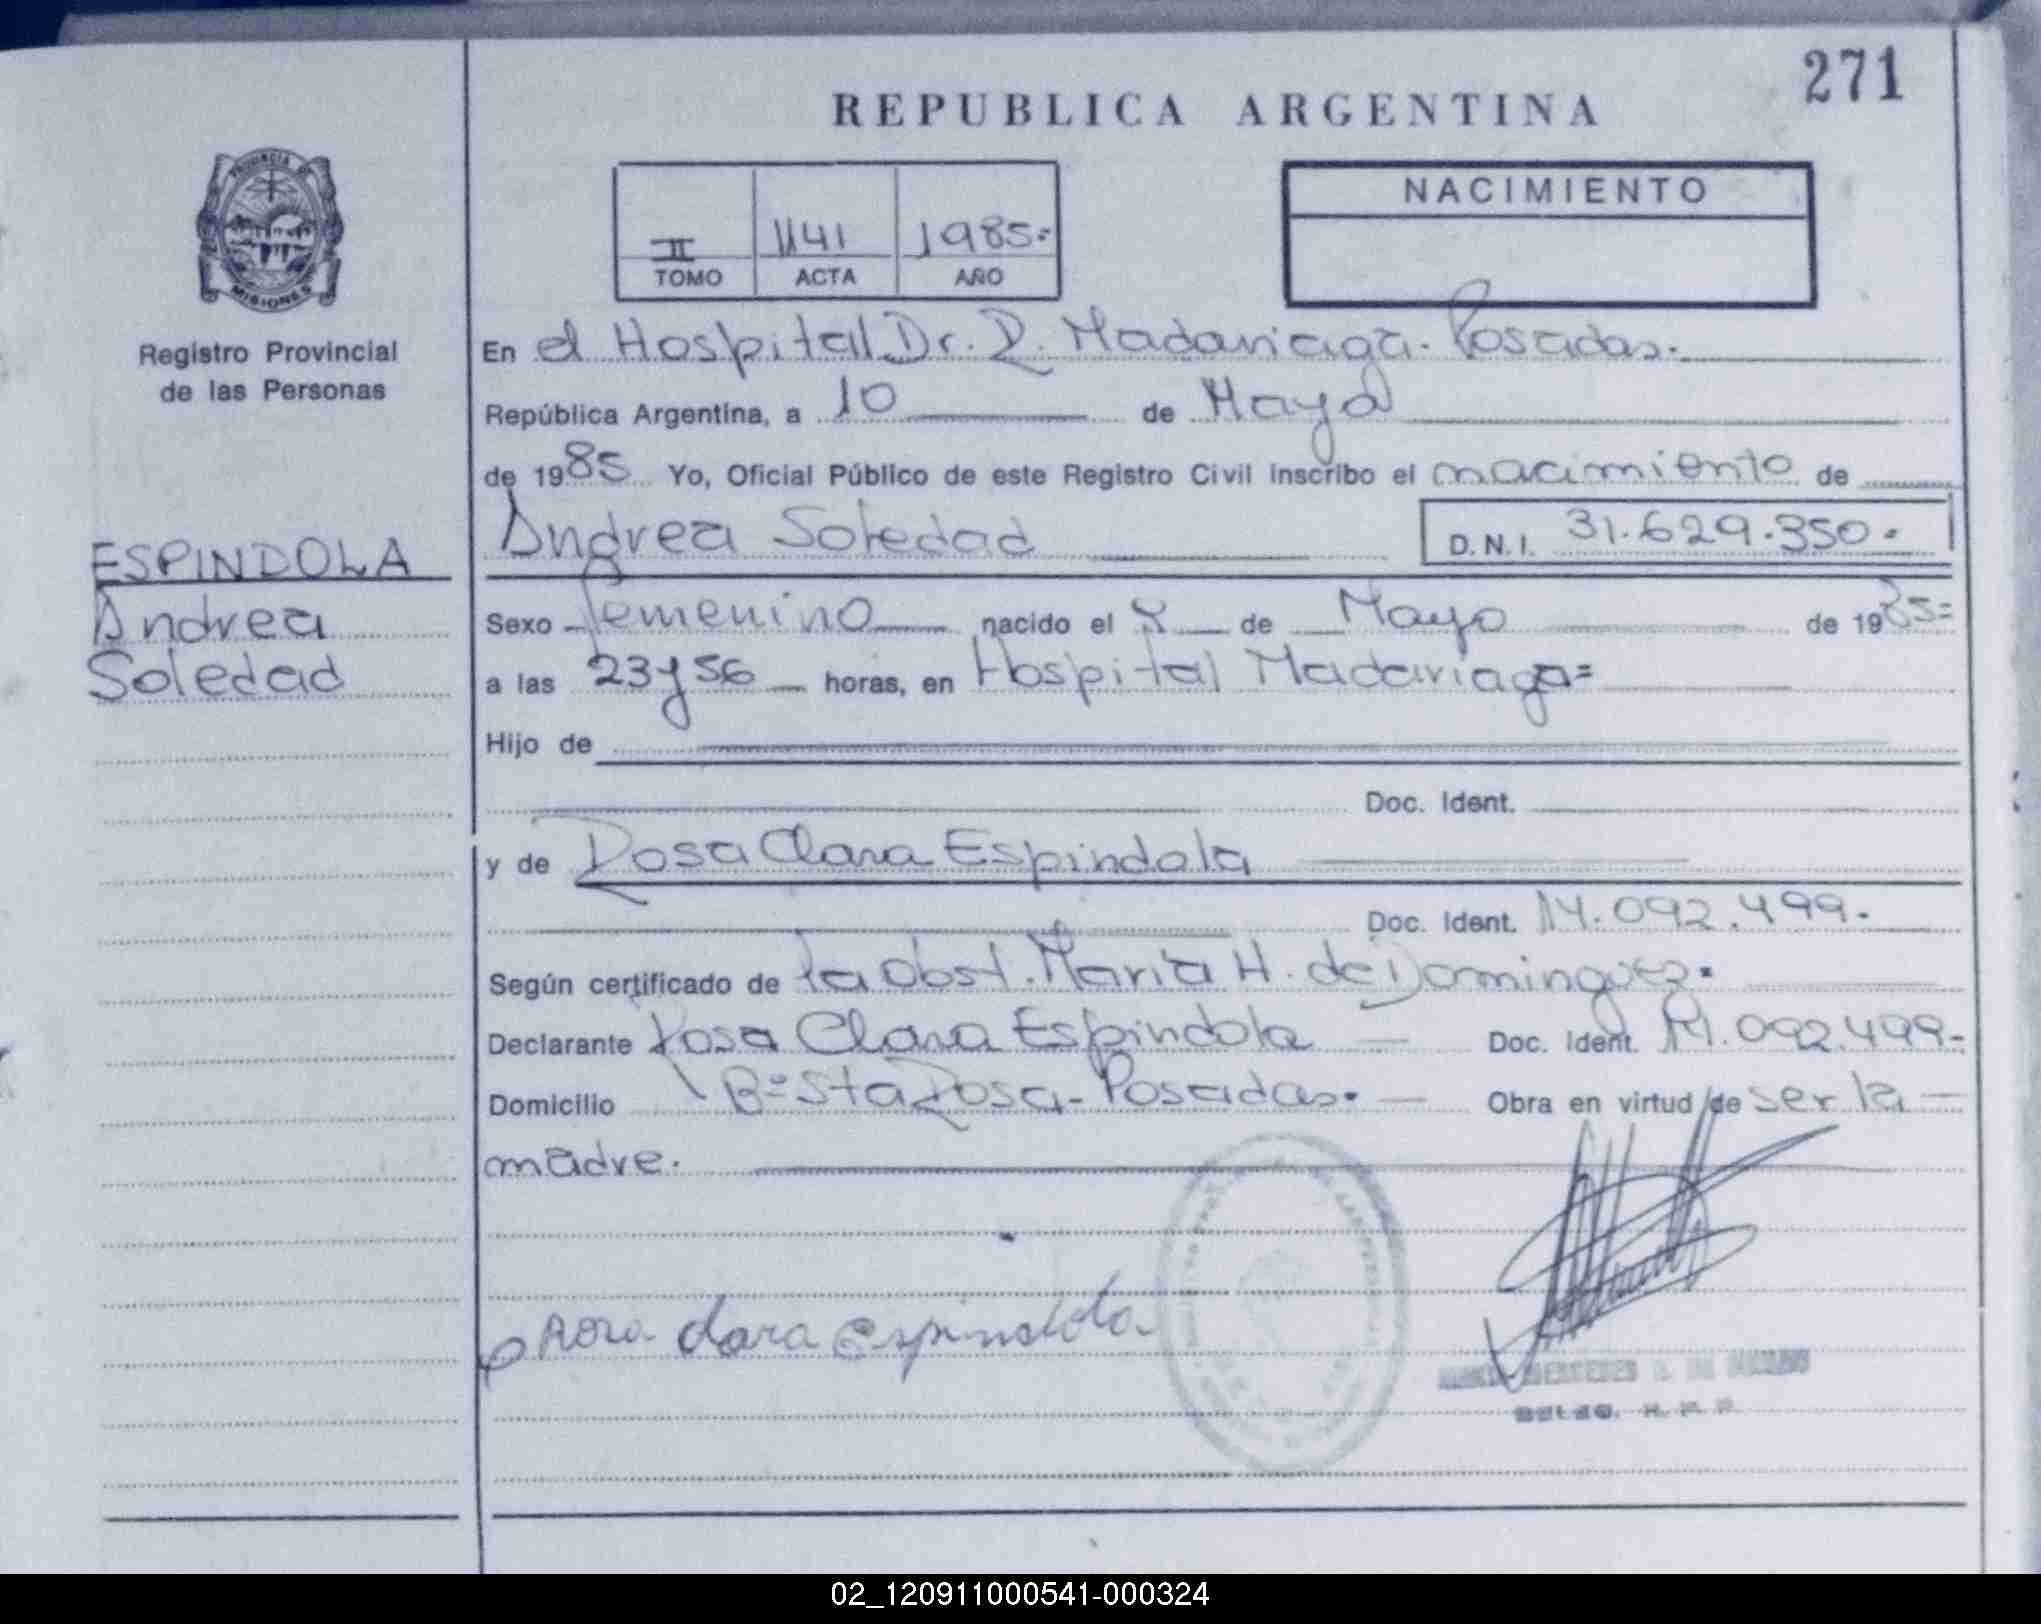 271
REPUBLICA ARGENTINA
PROVINCIA DE
MISIONES
Registro Provincial
de las Personas
II 1141 1985.-
TOMO ACTA AÑO
NACIMIENTO
En el Hospital Dr. R. Madariaga. Posadas.-
República Argentina, a 10 de Mayo
de 1985 Yo, Oficial Público de este Registro Civil inscribo el nacimiento de
Andrea Soledad D.N.I. 31.629.350.-
ESPINDOLA
Andrea
Soledad
Sexo femenino nacido el 8 de Mayo de 1985=
a las 23y56 horas, en Hospital Madariaga=
Hijo de
Doc. Ident.
y de Rosa Clara Espindola
Doc. Ident. 14.092.499.-
Según certificado de la obst. Maria H. de Dominguez.
Declarante Rosa Clara Espindola Doc. Ident. 14.092.499-
Domicilio Bº Sta Rosa - Posadas.- Obra en virtud de ser la
madre.
Rosa clara espindola
02_120911000541-000324